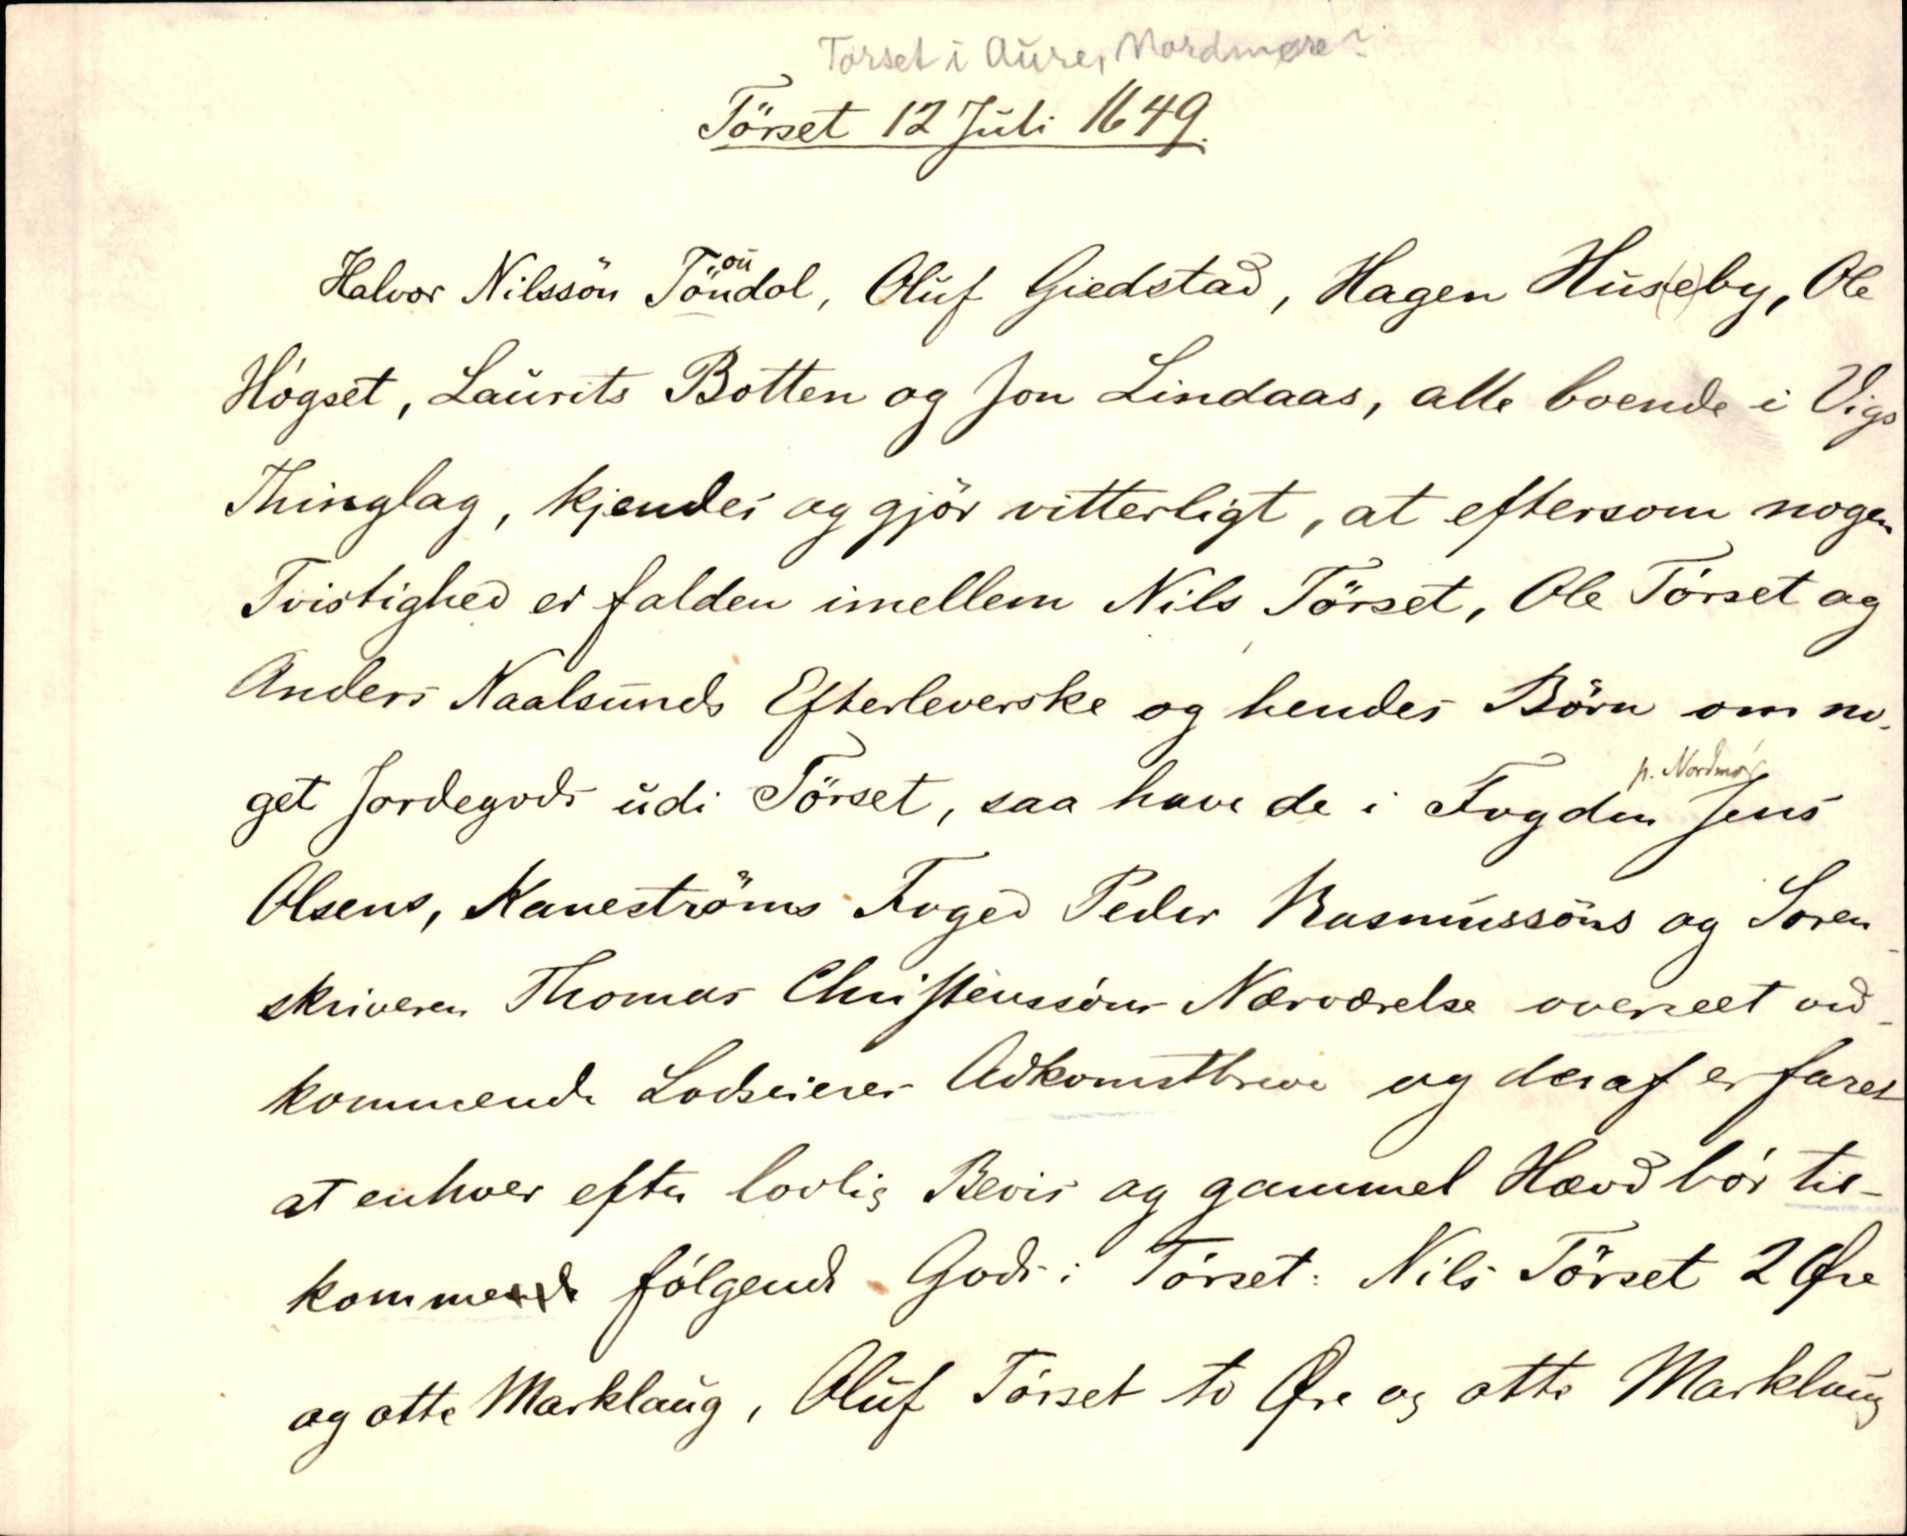 Torset i Aure, Nordmøre?
Törset 12 Juli 1649.
Halvor Nilssön Töndal, Oluf Giedstad, Hagen Hus(e)by, Ole
ou
Högset, Laurits Botten og Jon Lindaas, alle boende i Vigs
Thinglag, kjendes og gjör vitterligt, at eftersom nogen
Tvistighed er falden imellem Nils Törset, Ole Törset og
Anders Naalsunds Efterleverske og hendes Börn om no-
get Jordegods udi Törset, saa have de i Fogden Jens
p. Nordmör
Olsens, Kaneströms Foged Peder Rasmussöns og Soren-
skriveren Thomas Christenssöns Nærværelse overseet ved-
kommende Lodseieres Adkomstbreve og deraf erfaret
at enhver efter lovlig Bevis og gammel Hævd bör til-
komme følgende Gods i Törset: Nils Törset 2 Øre
og otte Marklaug, Oluf Törset to Øre og otte Marklaug